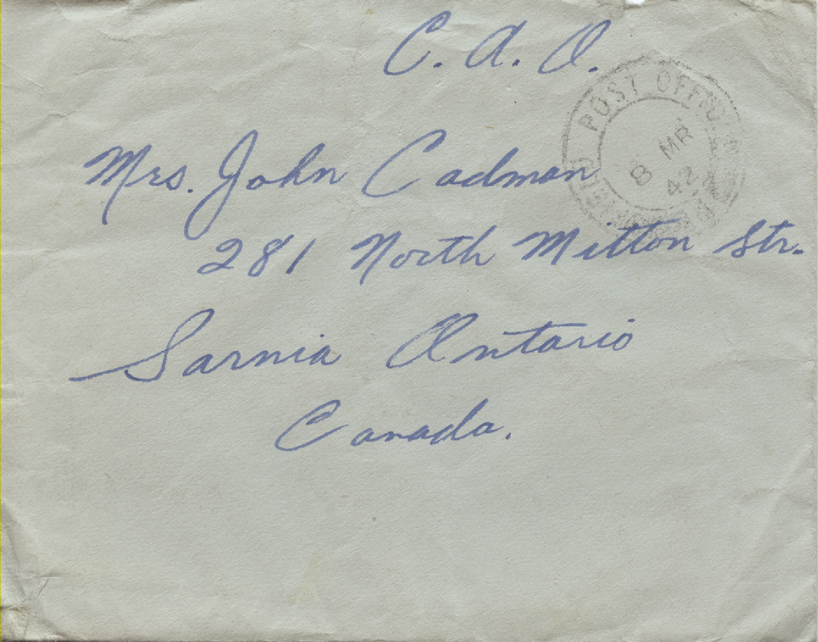 C. A. O.
POST OFFICE
8 MR
42
Mrs. John Cadman
281 North Mitton Str.
Sarnia Ontario
Canada.